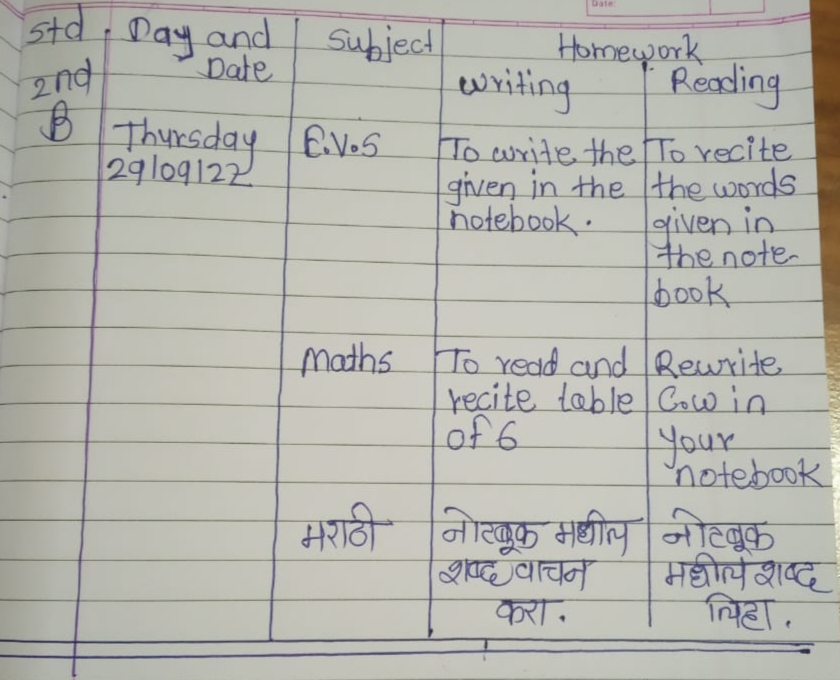 Date:
Std Day and Subject Homework
2nd Date Writing Reading
B Thursday E.V.S To write the To recite
29/09/22 given in the the words
notebook. given in
the note-
book
Maths To read and Rewrite
recite table C.W in
of 6 your
notebook
मराठी नोटबूक मधील नोटबूक
शब्द वाचन मधील शब्द
करा. लिहा.